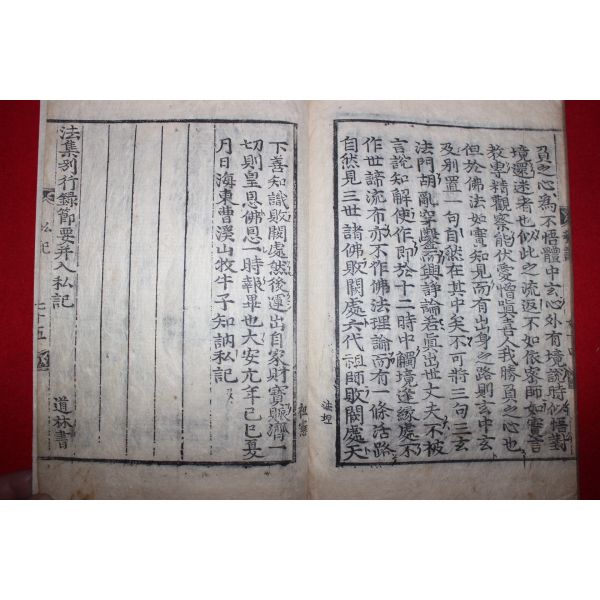 負之心爲不悟體中玄心外有境說時似悟對
境還迷者也似此之流返不如依密師如實言
教專精觀察能伏愛憎嗔喜人我勝負之心也
但於佛法如實知見而有出身之路則玄中玄
及別置一句自然在其中矣不可將三句三玄
法門胡亂穿鑿而興諍論若眞出世丈夫不被
言說知解使作即於十二時中觸境逢緣處不
作世諦流布亦不作佛法理論而有一條活路
自然見三世諸佛敗闕處六代祖師敗闕處天
法埋
下善知識敗闕處然後運出自家財寶賑濟一
切則皇恩佛恩一時報畢也大安元年己巳夏
月日海東曹溪山牧牛子知訥私記
法集別行錄節要幷入私記
道林書
私記
七十五